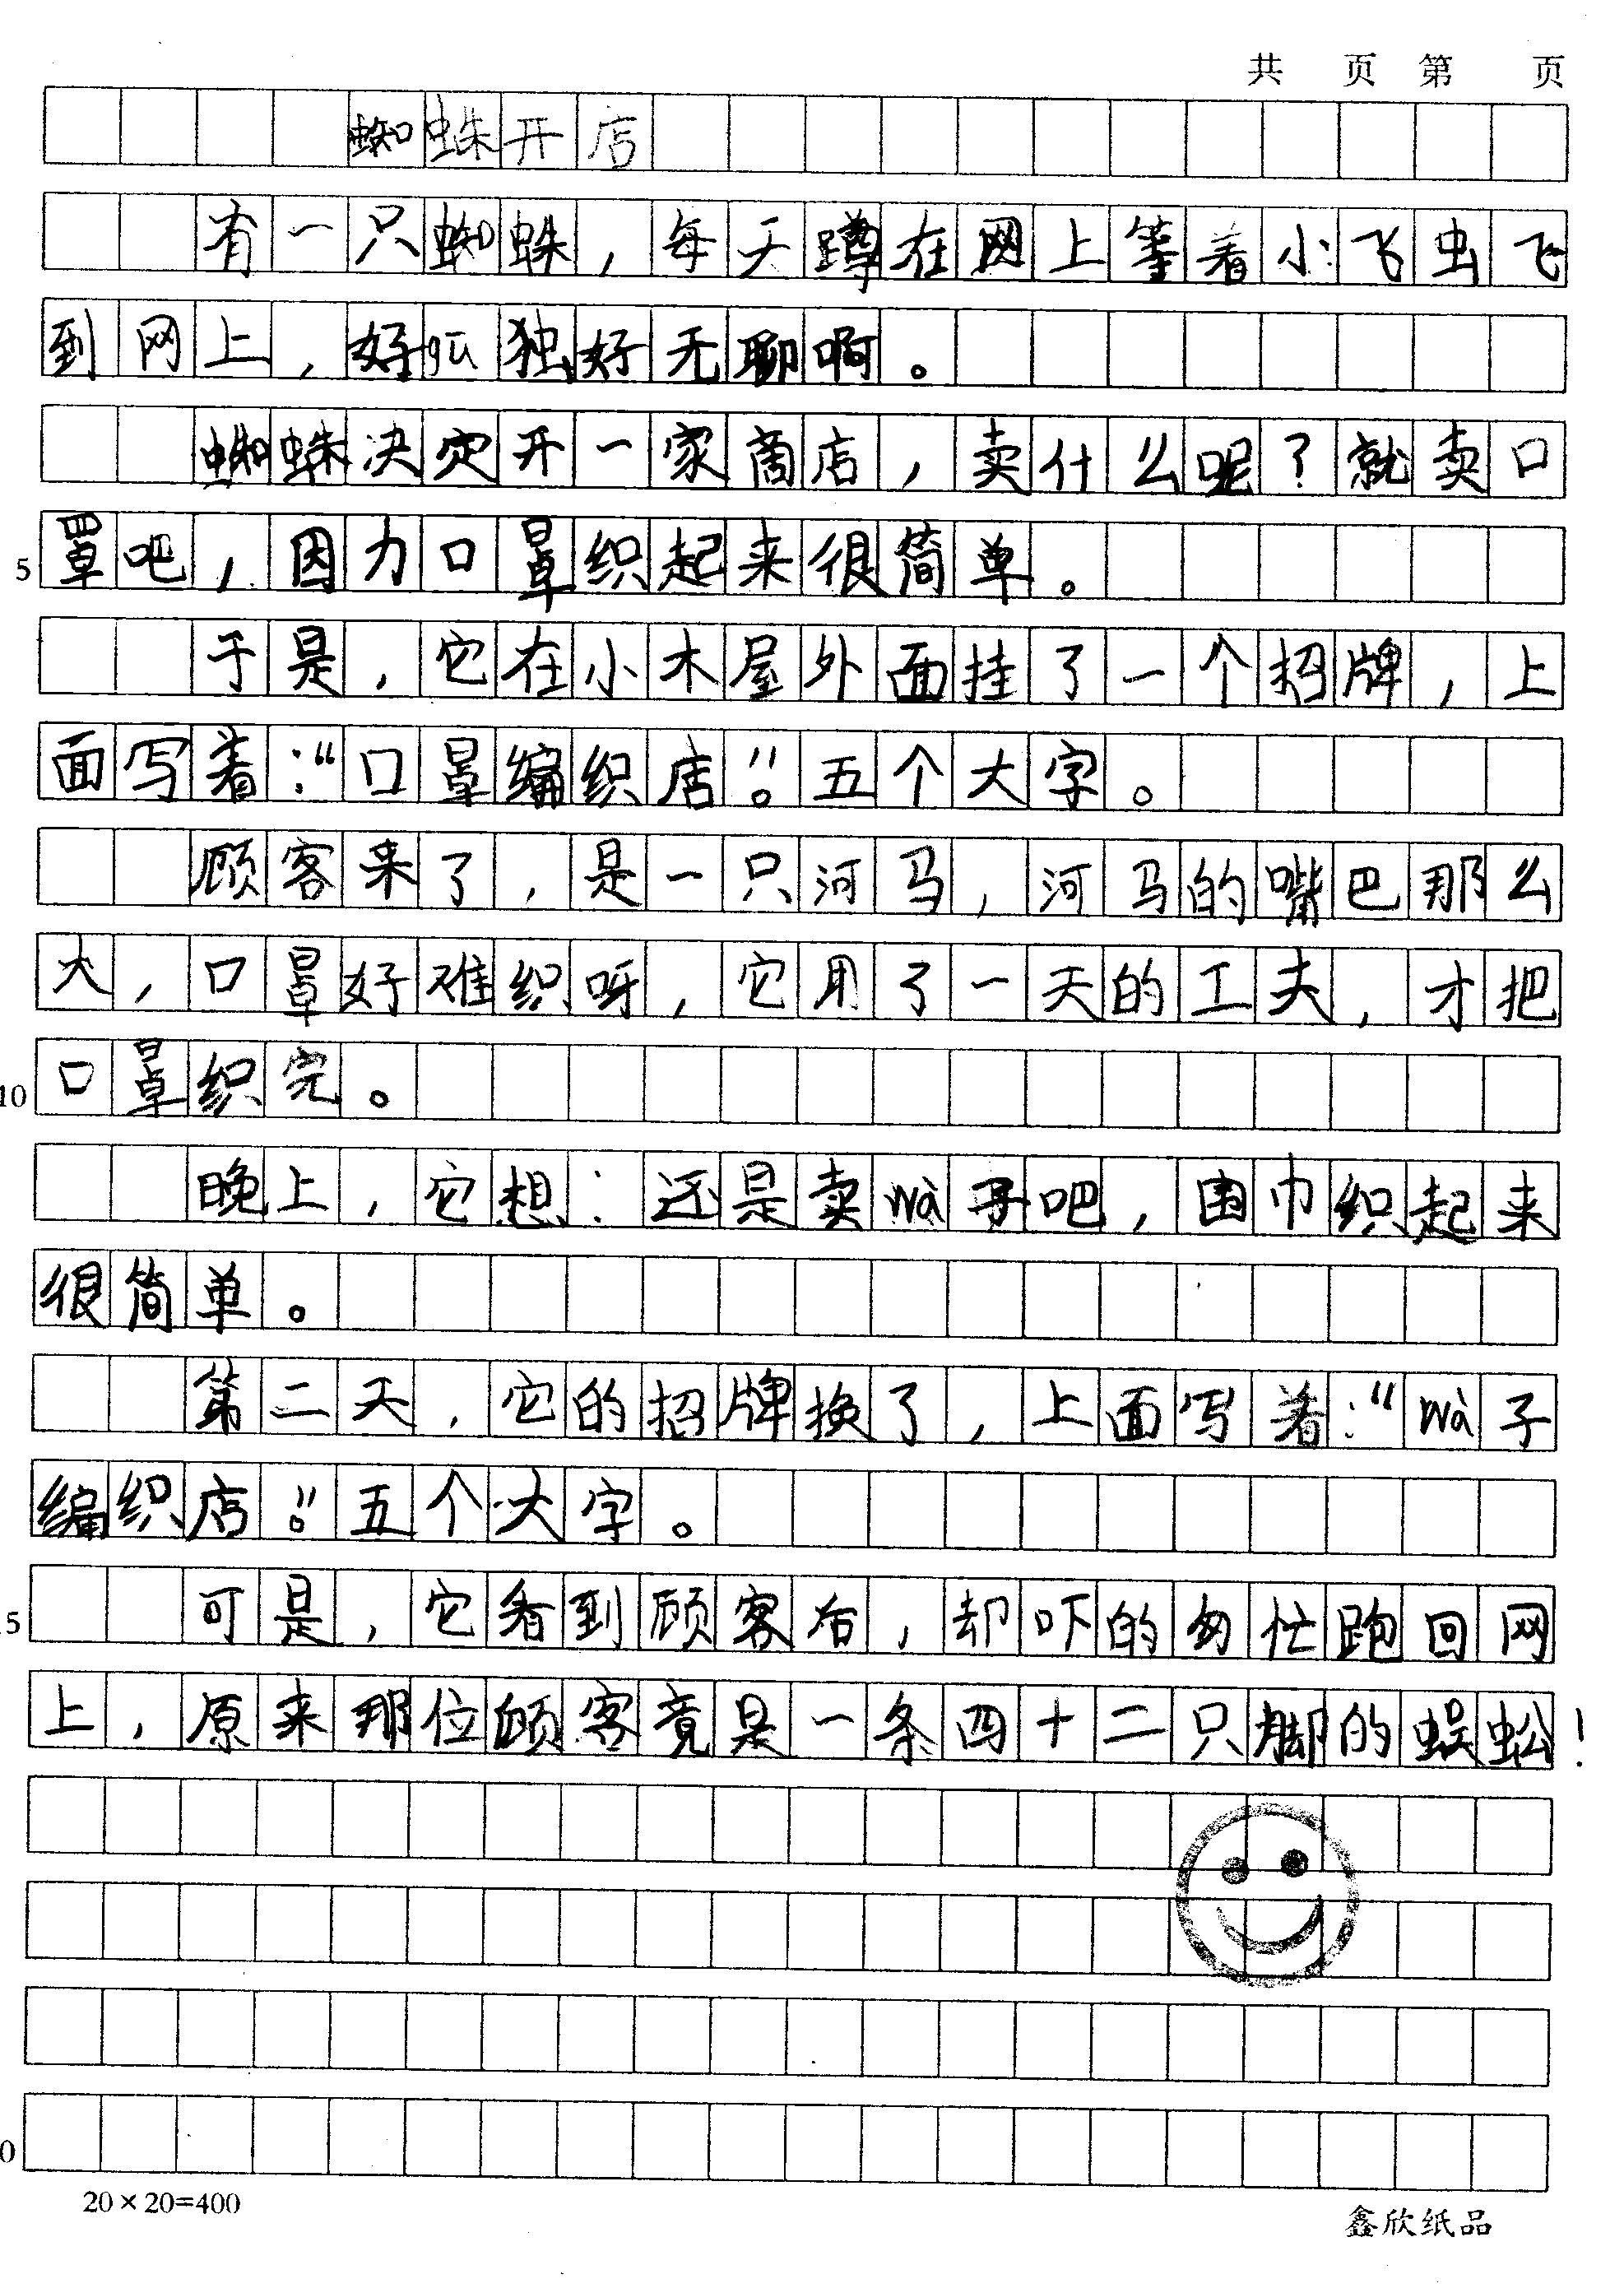 共 页 第 页
蜘蛛开店
有一只蜘蛛，每天蹲在网上等着小飞虫飞
到网上，好gū独好无聊啊。
蜘蛛决定开一家商店，卖什么呢？就卖口
5 罩吧，因为口罩织起来很简单。
于是，它在小木屋外面挂了一个招牌，上
面写着：“口罩编织店。”五个大字。
顾客来了，是一只河马，河马的嘴巴那么
大，口罩好难织呀，它用了一天的工夫，才把
10 口罩织完。
晚上，它想：还是卖wà子吧，围巾织起来
很简单。
第二天，它的招牌换了，上面写着：“wà子
编织店。”五个大字。
5 可是，它看到顾客后，却吓的匆忙跑回网
上，原来那位顾客竟是一条四十二只脚的蜈蚣！
0
20×20=400
鑫欣纸品